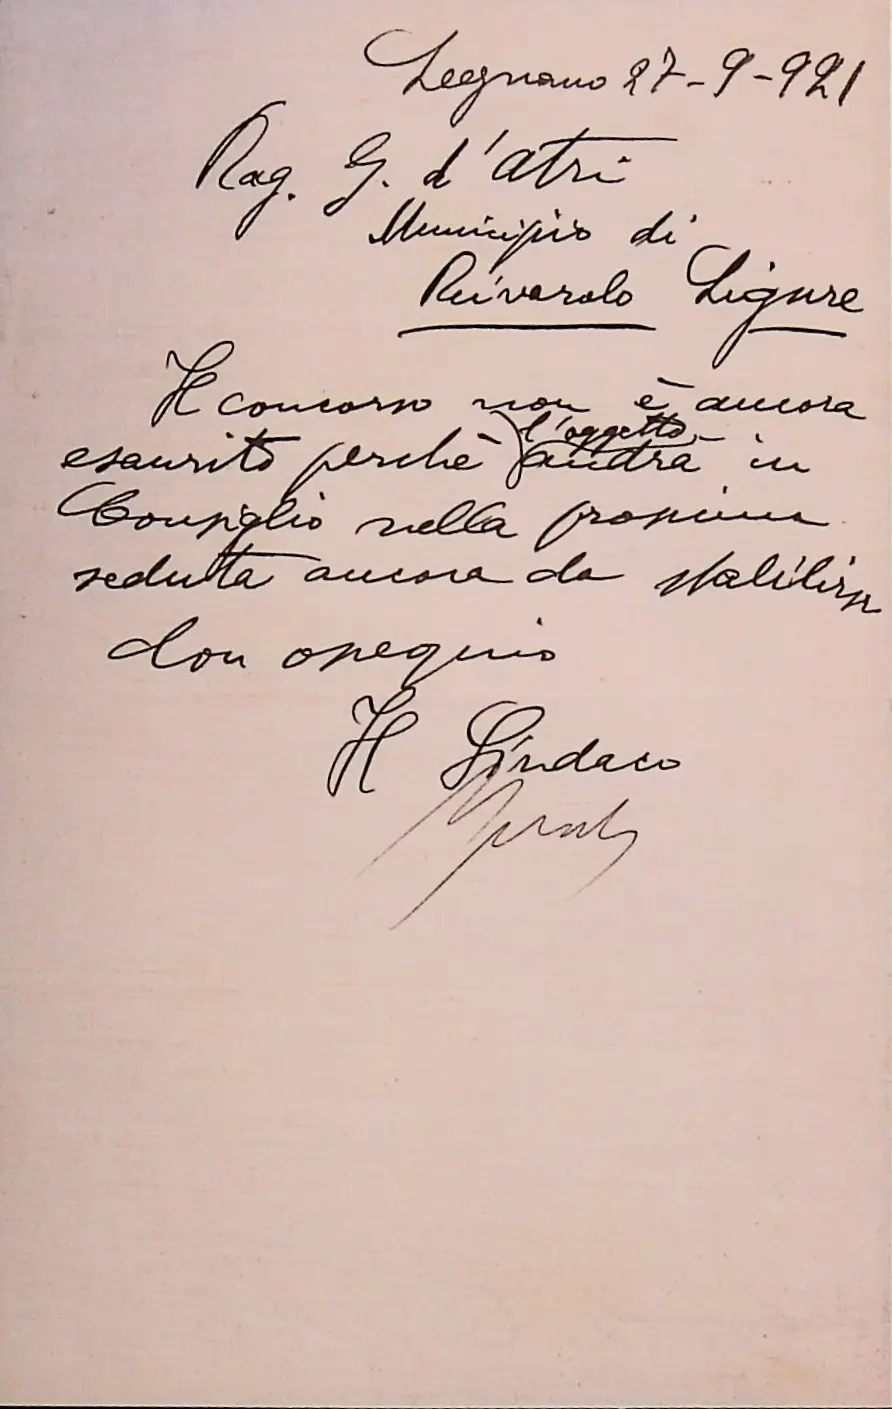 Legnano 27-9-921
Rag. G. d'Atri
Municipio di
Rivarolo Ligure
Il concorso non è ancora
esaurito perchè l'oggetto andrà in
Consiglio nella prossima
seduta ancora da stabilirsi
Con ossequio
Il Sindaco